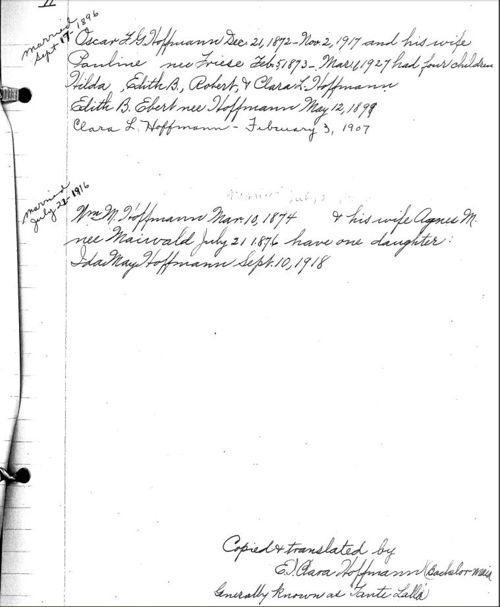 II
married
Sept 17-1896
Oscar F.G. Hoffmann Dec. 21, 1872-Nov. 2, 1917 and his wife
Pauline nee Friese Feb. 5, 1873-Mar. 4, 1927 had four children
Hilda, Edith B., Robert, & Clara L. Hoffmann
Edith B. Ebert nee Hoffmann May 12, 1899
Clara L. Hoffmann - February 3, 1907
married
July 22-1916
Wm M. Hoffmann Mar. 10, 1874 & his wife Agnes M.
nee Maiwald July 21 1876 have one daughter:
Ida May Hoffmann Sept. 10, 1918
Copied & translated by
E. Clara Hoffmann (Bachelor Maid
Generally Known as "Tante Lalla"